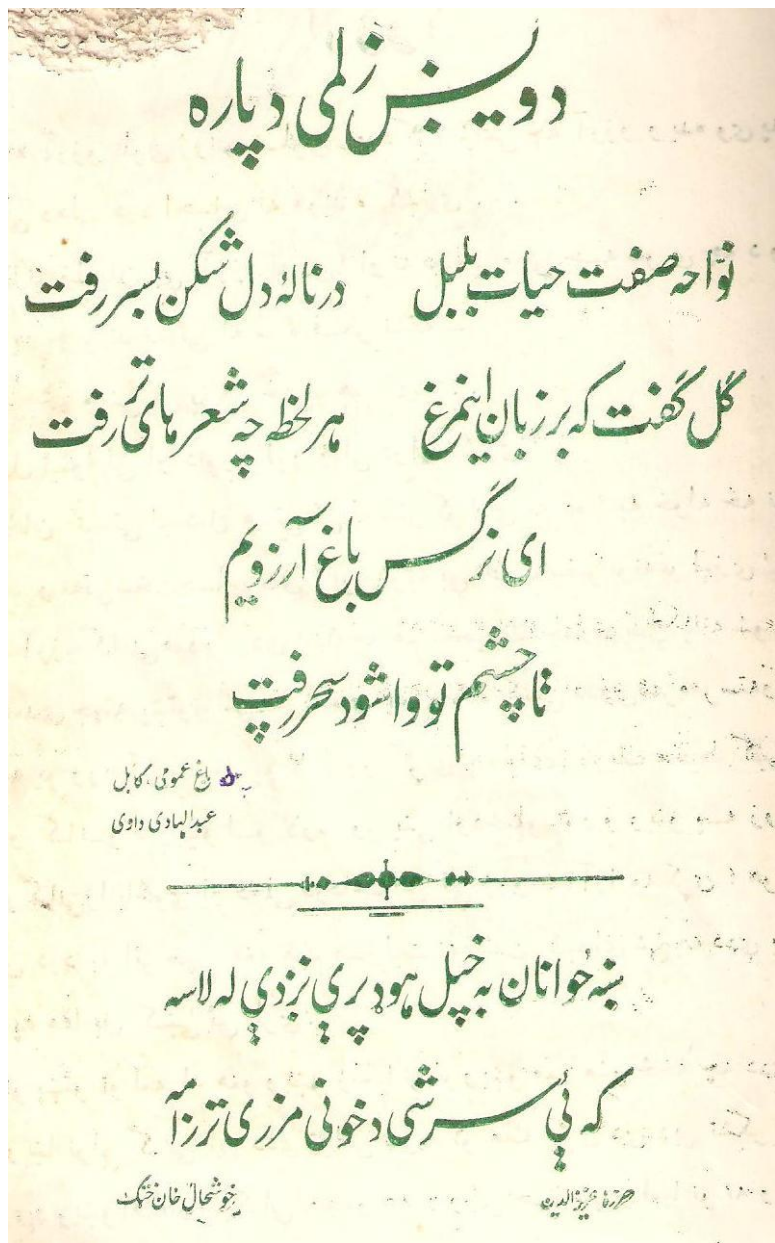 د ویښ زلمی دپاره
نوّاحه صفت حیات بلبل در نالهٔ دل شکن بسر رفت
گل گفت که بر زبان اینمرغ هر لحظه چه شعر های تر رفت
ای نرگس باغ آرزویم
تا چشم تو وا شود سحر رفت
باغ عمومی، کابل
عبدالهادی داوی
ښه ځوانان به خپل هوډ پرې نږدي له لاسه
که یې سر شی د خونی مزری تر زامه
خوشحال خان خټک